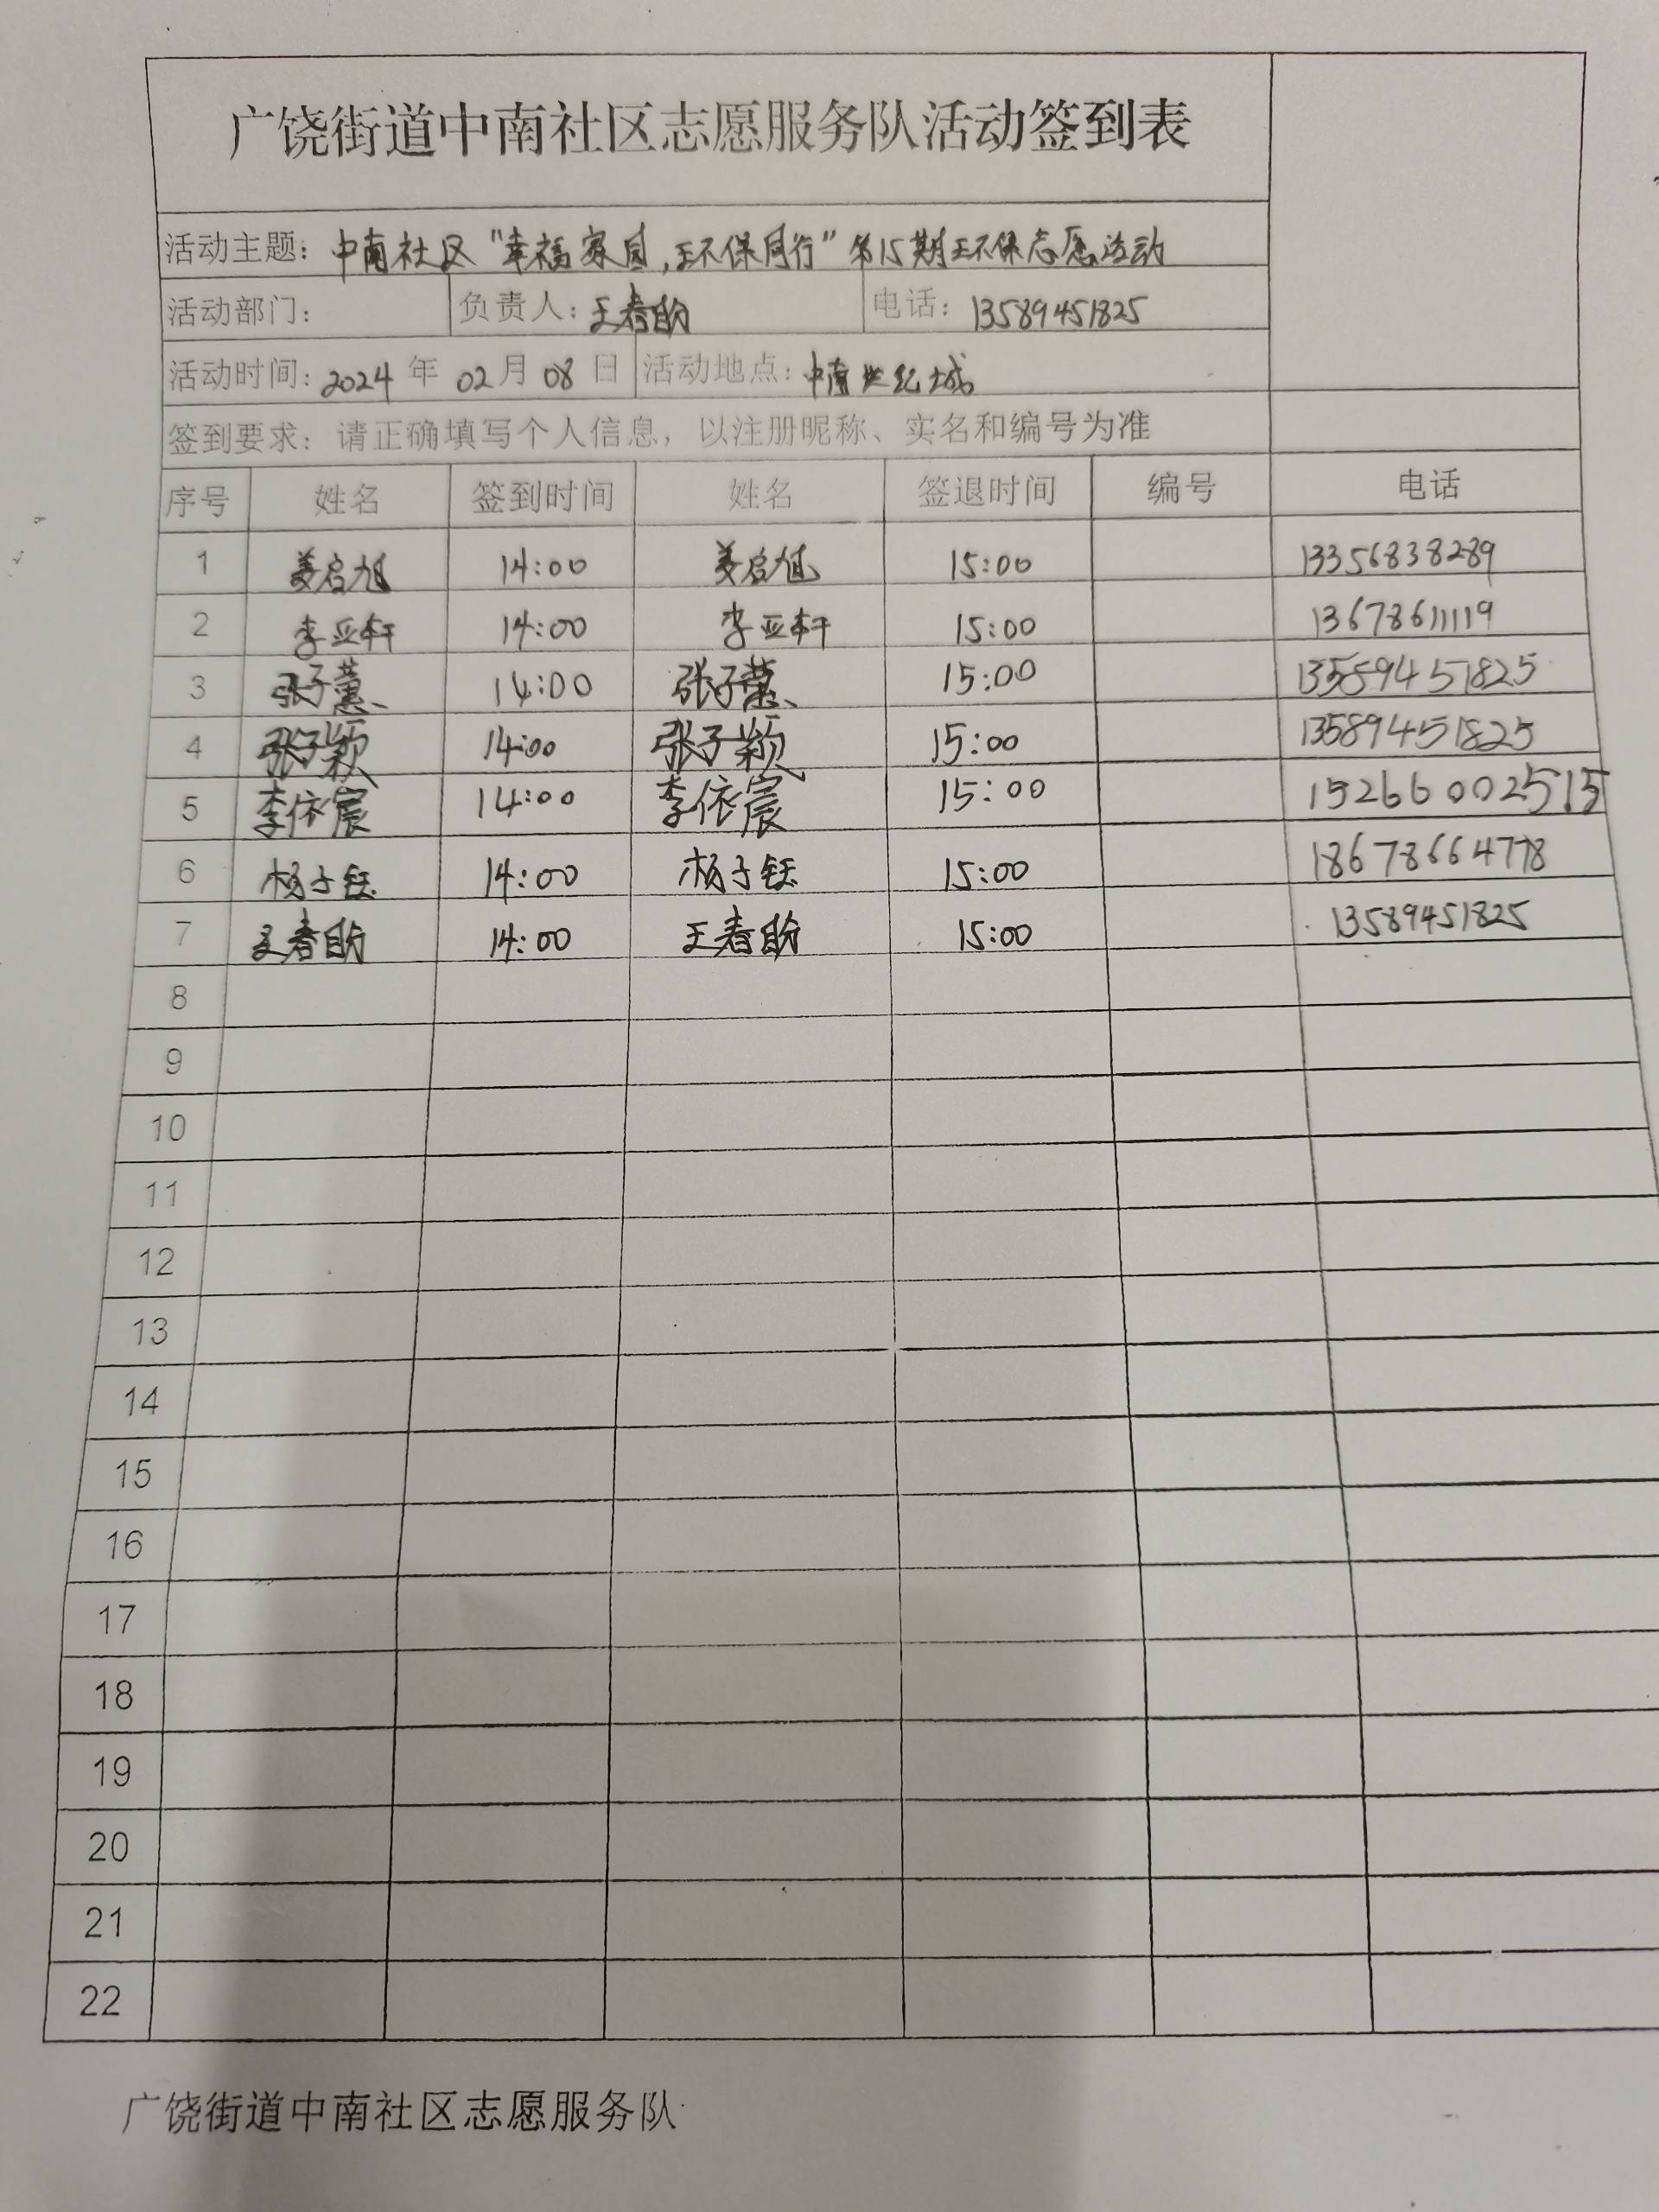 广饶街道中南社区志愿服务队活动签到表
活动主题：中南社区“幸福家园，环保同行”第15期环保志愿活动
活动部门： 负责人：王春盼 电话：13589451825
活动时间：2024年02月08日 活动地点：中南世纪城
签到要求：请正确填写个人信息，以注册昵称、实名和编号为准
序号 姓名 签到时间 姓名 签退时间 编号 电话
1 姜启旭 14:00 姜启旭 15:00 13356838289
2 李亚轩 14:00 李亚轩 15:00 13678611119
3 张子蕙 14:00 张子蕙 15:00 13589451825
4 张子颖 14:00 张子颖 15:00 13589451825
5 李依宸 14:00 李依宸 15:00 15266002515
6 杨子钰 14:00 杨子钰 15:00 18678664778
7 王春盼 14:00 王春盼 15:00 13589451825
8
9
10
11
12
13
14
15
16
17
18
19
20
21
22
广饶街道中南社区志愿服务队